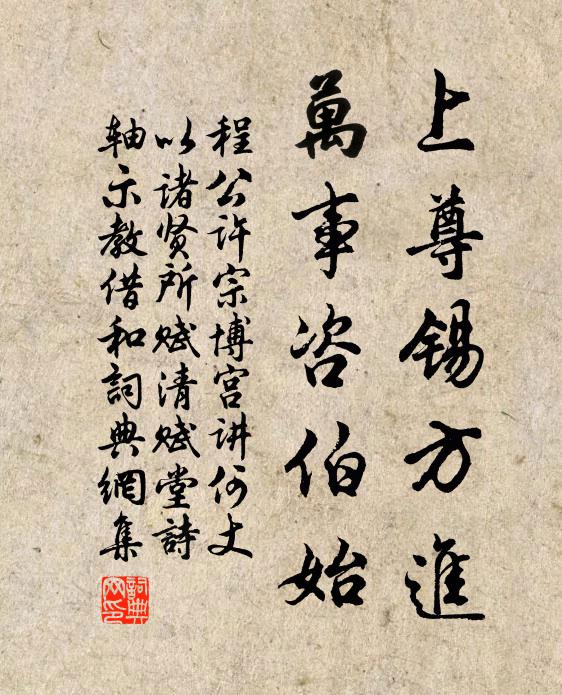 上尊锡方進
萬事咨伯始
程公许宗博宫讲何丈
以诸贤所赋清赋堂詩
轴示教借和詞典網集
詞典
网印